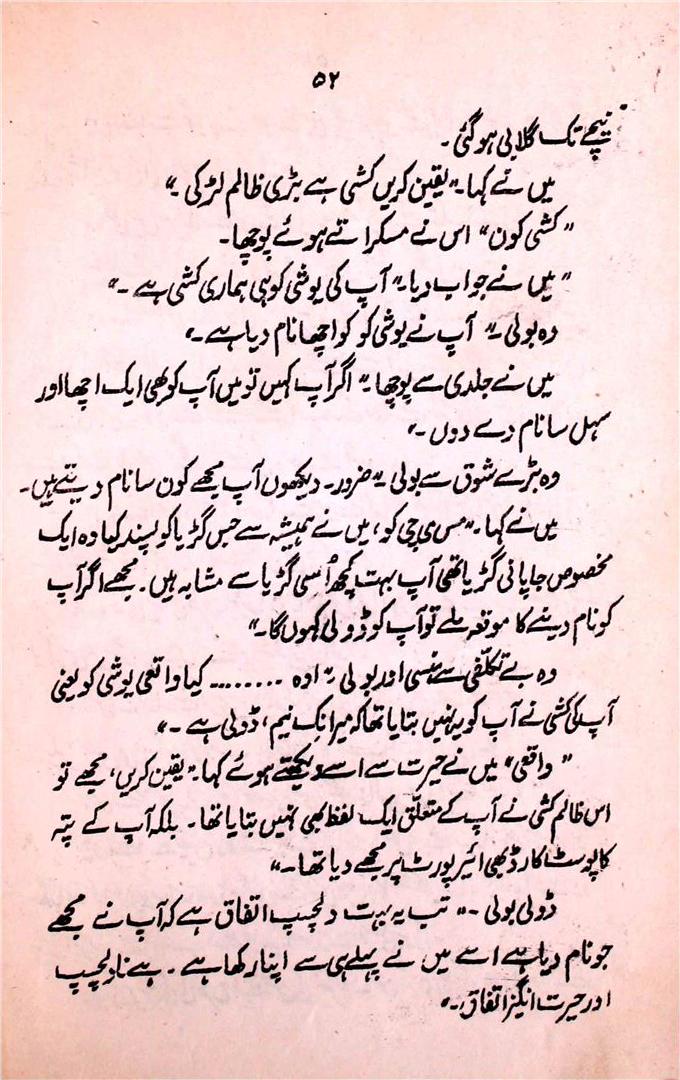 ۵۲
نیچے تک گلابی ہو گئی۔
میں نے کہا۔" یقین کریں کشی ہے بڑی ظالم لڑکی۔"
"کشی کون" اس نے مسکراتے ہوئے پوچھا۔
"میں نے جواب دیا۔" آپ کی یوشی کو ہی ہماری کشی ہے۔"
وہ بولی۔" آپ نے یوشی کو کو اچھا نام دیا ہے۔"
میں نے جلدی سے پوچھا۔" اگر آپ کہیں تو میں آپ کو بھی ایک اچھا اور
سہل سا نام دے دوں۔"
وہ بڑے شوق سے بولی۔" ضرور۔ دیکھوں آپ مجھے کون سا نام دیتے ہیں۔
میں نے کہا۔" مس ی چی کو، میں نے ہمیشہ سے جس گڑیا کو پسند کیا وہ ایک
مخصوص جاپانی گڑیا تھی آپ بہت کچھ اُسی گڑیا سے مشابہ ہیں۔ مجھے اگر آپ
کو نام دینے کا موقعہ ملے تو آپ کو ڈولی کہوں گا۔"
وہ بے تکلّفی سے ہنسی اور بولی۔" اوہ ........ کیا واقعی یوشی کو یعنی
آپ کی کشی نے آپ کو یہ نہیں بتایا تھا کہ میرا نک نیم، ڈولی ہے۔"
"واقعی" میں نے حیرت سے اسے دیکھتے ہوئے کہا۔" یقین کریں، مجھے تو
اس ظالم کشی نے آپ کے متعلّق ایک لفظ بھی نہیں بتایا تھا۔ بلکہ آپ کے پتہ
کا پوسٹ کارڈ بھی ائیرپورٹ پر مجھے دیا تھا۔"
ڈولی بولی۔" تب یہ بہت دلچسپ اتفاق ہے کہ آپ نے مجھے
جو نام دیا ہے اسے میں نے پہلے ہی سے اپنا رکھا ہے۔ ہے نا دلچسپ
اور حیرت انگیز اتفاق۔"